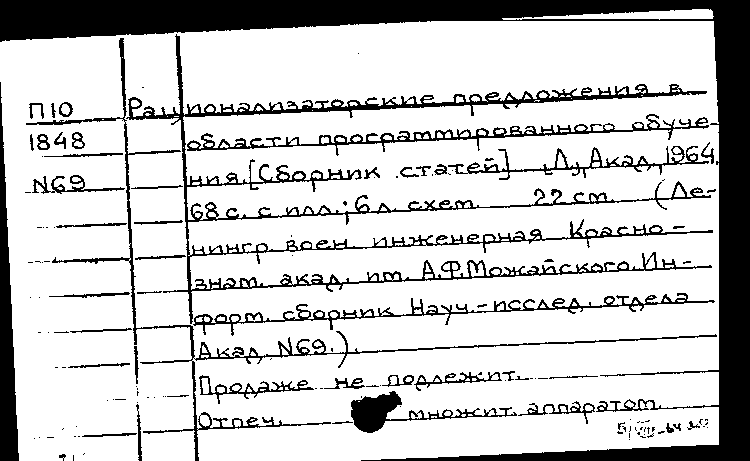 П10 Рационализаторские предложения в
1848 области программированного обуче-
N69 ния. [Сборник статей] Л., Акад., 1964.
68 с. с илл.; 6 л. схем. 22 см. (Ле-
нингр. воен. инженерная Красно-
знам. акад. им. А.Ф.Можайского. Ин-
форм. сборник Науч.-исслед. отдела
Акад. N69.).
Продаже не подлежит.
Отпеч. множит. аппаратом